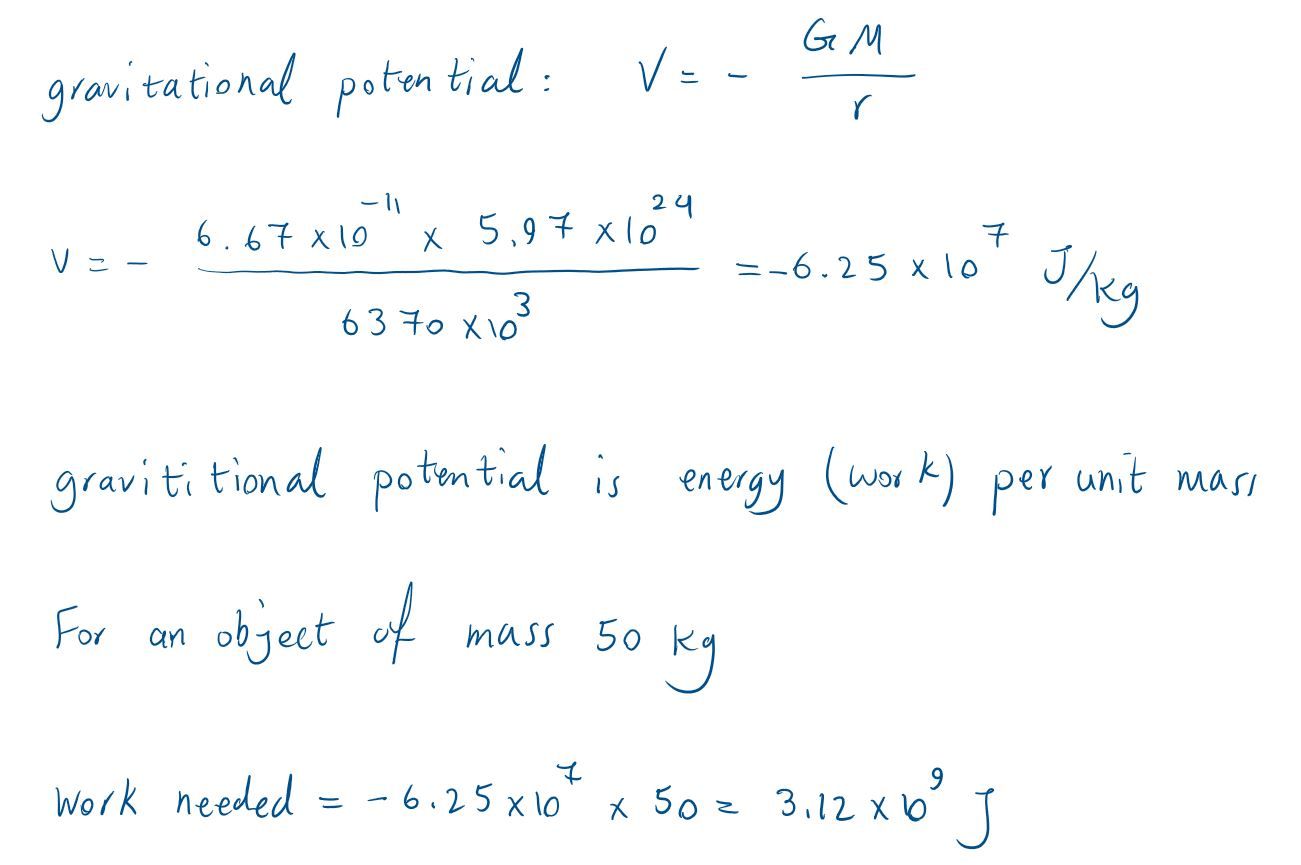 gravitational potential: V = - GM / r
V = - 6.67 × 10^-11 × 5.97 × 10^24 / 6370 × 10^3 = -6.25 × 10^7 J/kg
gravititional potential is energy (work) per unit mass
For an object of mass 50 kg
Work needed = -6.25 × 10^7 × 50 = 3.12 × 10^9 J